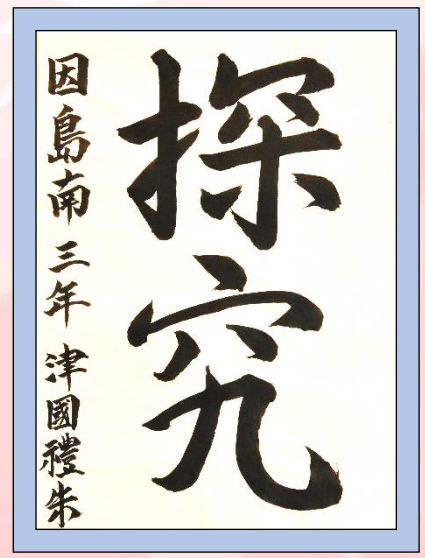 探究
因島南 三年 津國禮朱